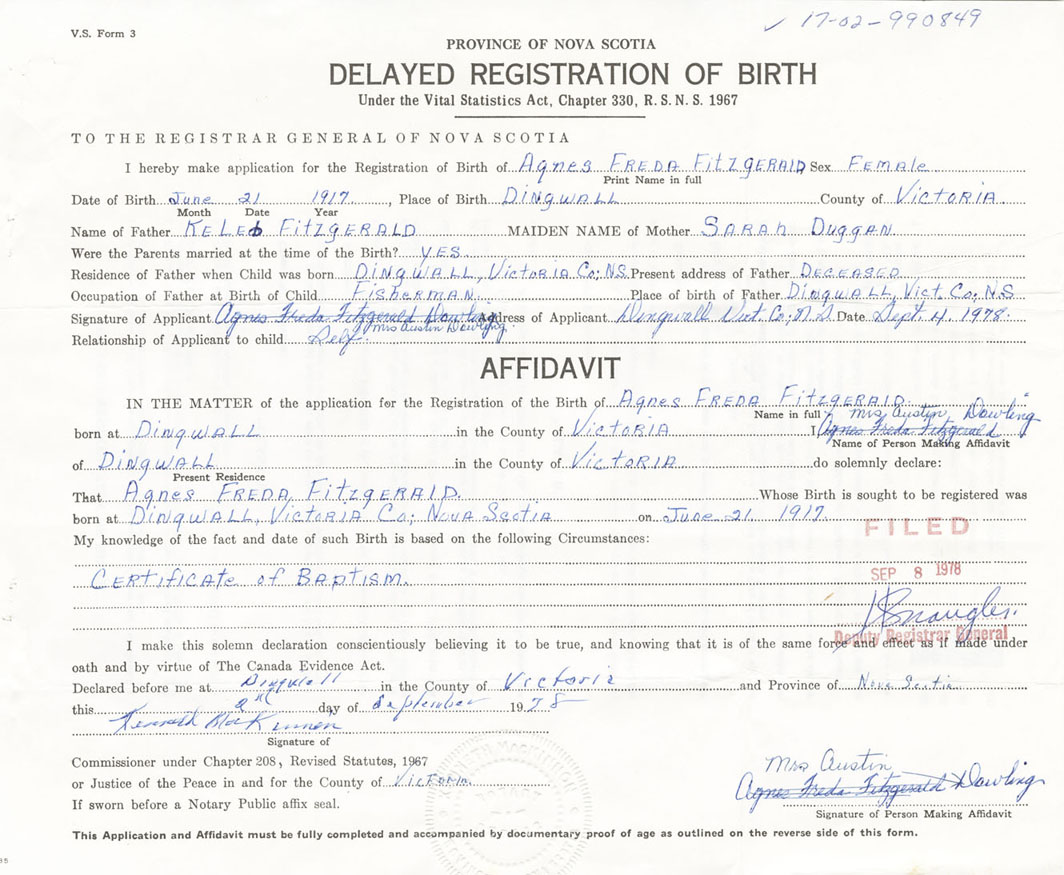 ✓ 17-02-990849
V.S. Form 3
PROVINCE OF NOVA SCOTIA
DELAYED REGISTRATION OF BIRTH
Under the Vital Statistics Act, Chapter 330, R.S.N.S. 1967
TO THE REGISTRAR GENERAL OF NOVA SCOTIA
I hereby make application for the Registration of Birth of Agnes FREDA FitzgERALD Sex FEMAle
Print Name in full
Date of Birth June 21 1917, Place of Birth DINgWALL County of VICTORIA
Month Date Year
Name of Father KELEb FitzgERALD MAIDEN NAME of Mother SARAh DuggAN
Were the Parents married at the time of the Birth? YES
Residence of Father when Child was born DINgWALL, Victoria Co; NS Present address of Father DECEASED
Occupation of Father at Birth of Child FishERMAN Place of birth of Father DINgWALL, Vict. Co; N.S
Signature of Applicant Agnes Freda Fitzgerald Dowling Address of Applicant Dingwall Vict Co; N.S Date Sept. 4, 1978.
Mrs Austin Dowling
Relationship of Applicant to child Self
AFFIDAVIT
IN THE MATTER of the application for the Registration of the Birth of Agnes FREDA FitzgERAlD
Name in full Mrs Austin Dowling
born at DINgWALL in the County of VICTORIA I Agnes Freda Fitzgerald
Name of Person Making Affidavit
of DINgWALL in the County of VICTORIA do solemnly declare:
Present Residence
That Agnes FREDA FitzgERAlD. Whose Birth is sought to be registered was
born at DINgWALL, VICTORIA Co; NOVA SCOTIA on June 21 1917.
My knowledge of the fact and date of such Birth is based on the following Circumstances:
FILED
CERTIFICATE of BAPTISM.
SEP 8 1978
Deputy Registrar General
I make this solemn declaration conscientiously believing it to be true, and knowing that it is of the same force and effect as if made under
oath and by virtue of The Canada Evidence Act.
Declared before me at Dingwall in the County of Victoria and Province of Nova Scotia
this day of September 1978
Kenneth MacKinnon
Signature of
Commissioner under Chapter 208, Revised Statutes, 1967
or Justice of the Peace in and for the County of Victoria
If sworn before a Notary Public affix seal.
Mrs Austin
Agnes Freda Fitzgerald Dowling
Signature of Person Making Affidavit
This Application and Affidavit must be fully completed and accompanied by documentary proof of age as outlined on the reverse side of this form.